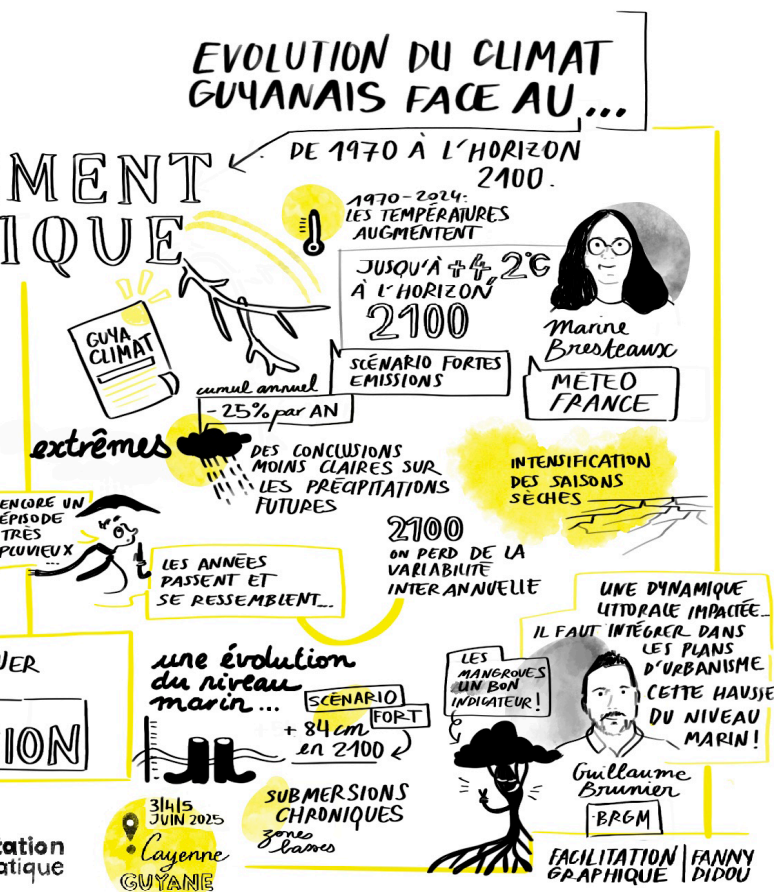 EVOLUTION DU CLIMAT
GUYANAIS FACE AU...
MENT
IQUE
DE 1970 À L'HORIZON
2100.
1970-2024:
LES TEMPÉRATURES
AUGMENTENT
JUSQU'À +4,2°C
À L'HORIZON
2100
SCÉNARIO FORTES
EMISSIONS
Marine
Bresteaux
MÉTEO
FRANCE
GUYA
CLIMAT
cumul annuel
-25% par AN
extrêmes
DES CONCLUSIONS
MOINS CLAIRES SUR
LES PRÉCIPITATIONS
FUTURES
INTENSIFICATION
DES SAISONS
SÈCHES
ENCORE UN
ÉPISODE
TRÈS
PLUVIEUX
...
LES ANNÉES
PASSENT ET
SE RESSEMBLENT...
2100
ON PERD DE LA
VARIABILITÉ
INTERANNUELLE
UNE DYNAMIQUE
LITTORALE IMPACTÉE...
IL FAUT INTÉGRER DANS
LES PLANS
D'URBANISME
CETTE HAUSSE
DU NIVEAU
MARIN!
UER
ION
une évolution
du niveau
marin...
SCÉNARIO
FORT
+ 84 cm
en 2100
LES
MANGROVES
UN BON
INDICATEUR!
Guillaume
Brunier
BRGM
SUBMERSIONS
CHRONIQUES
zones
basses
3|4|5
JUIN 2025
Cayenne
GUYANE
tation
atique
FACILITATION
GRAPHIQUE
FANNY
DIDOU